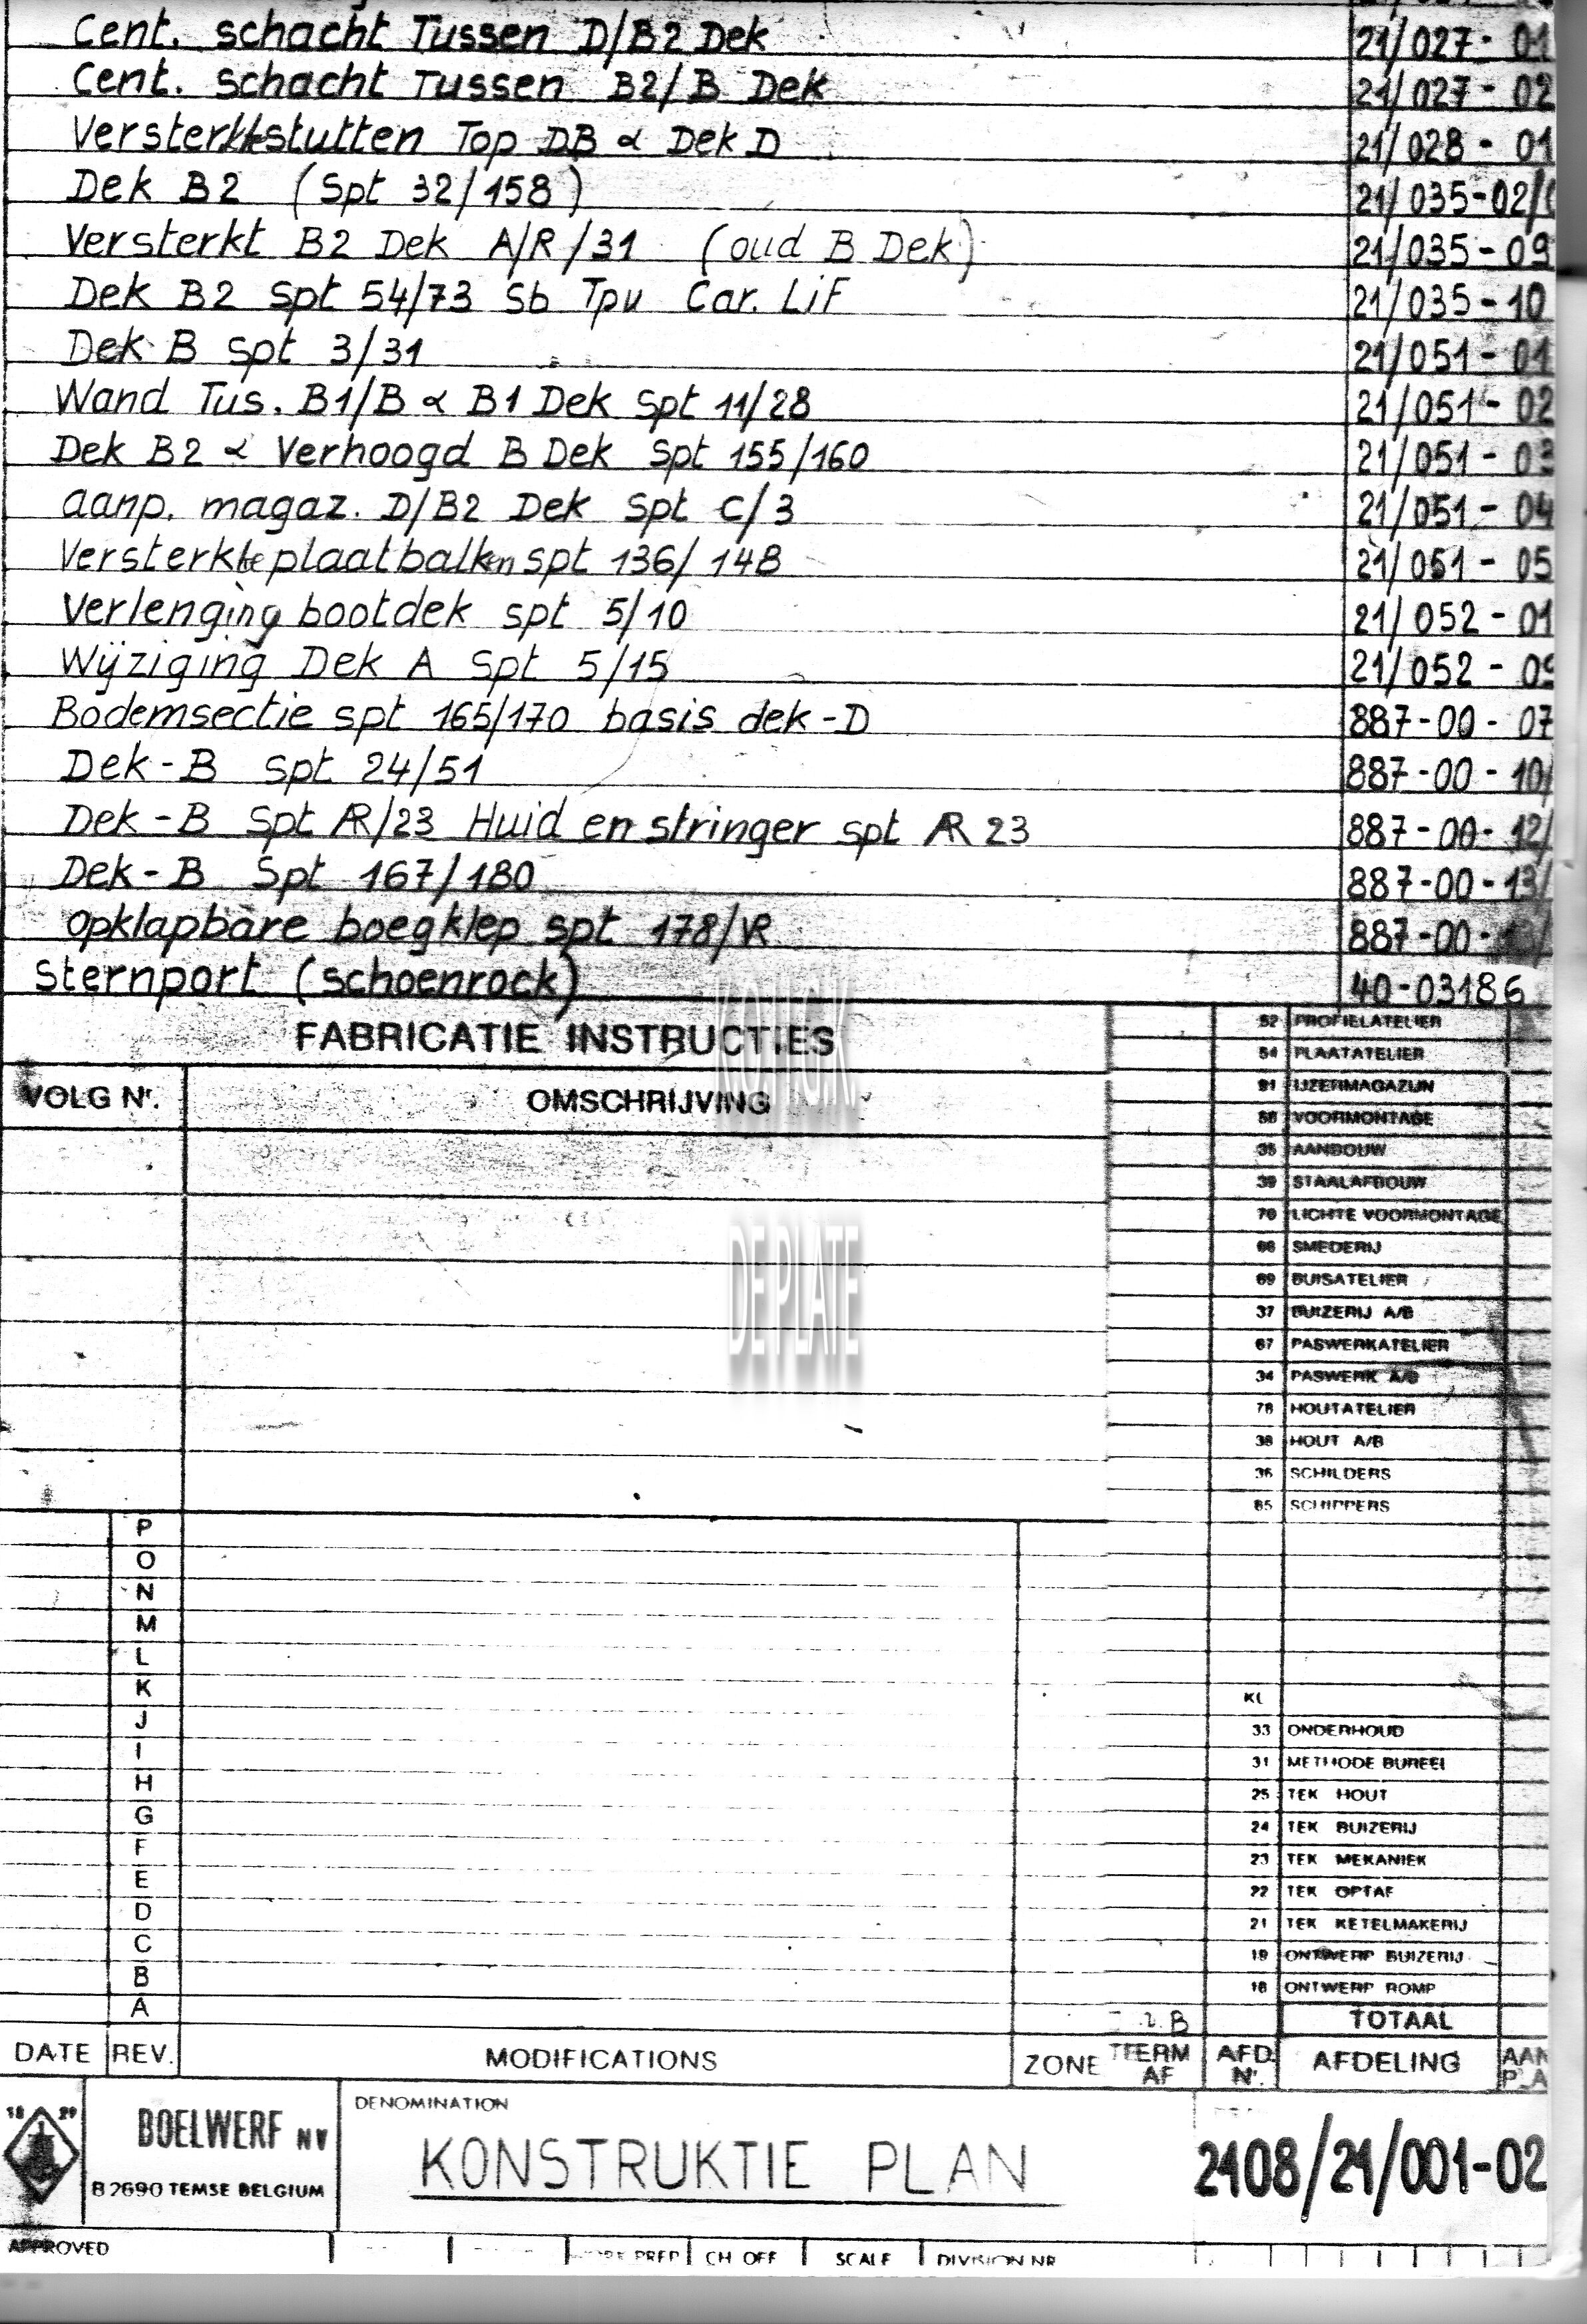 Cent. schacht Tussen D/B2 Dek 21/027-01
Cent. schacht Tussen B2/B Dek 21/027-02
Versterkte stutten Top DB & Dek D 21/028-01
Dek B2 (Spt 32/158) 21/035-02/
Versterkt B2 Dek A/R/31 (oud B Dek) 21/035-09
Dek B2 spt 54/73 Sb Tpv Car. Lif 21/035-10
Dek B spt 3/31 21/051-01
Wand Tus. B1/B & B1 Dek spt 11/28 21/051-02
Dek B2 & Verhoogd B Dek spt 155/160 21/051-03
aanp. magaz. D/B2 Dek spt C/3 21/051-04
Versterkte plaatbalken spt 136/148 21/051-05
Verlenging bootdek spt 5/10 21/052-01
Wijziging Dek A spt 5/15 21/052-09
Bodemsectie spt 165/170 basis dek-D 887-00-07
Dek-B spt 24/51 887-00-10/
Dek-B spt AR/23 Huid en stringer spt AR 23 887-00-12/
Dek-B Spt 167/180 887-00-13/
opklapbare boegklep spt 178/VR 887-00-
Sternport (schoenrock) 40-03186
FABRICATIE INSTRUCTIES
VOLG Nr. OMSCHRIJVING
KON.G.K.
DE PLATE
52 PROFIELATELIER
54 PLAATATELIER
91 IJZERMAGAZIJN
56 VOORMONTAGE
35 AANBOUW
39 STAALAFBOUW
70 LICHTE VOORMONTAGE
66 SMEDERIJ
69 BUISATELIER
37 BUIZERIJ A/B
67 PASWERKATELIER
34 PASWERK A/B
78 HOUTATELIER
38 HOUT A/B
36 SCHILDERS
85 SCHIPPERS
P
O
N
M
L
K
J
I
H
G
F
E
D
C
B
A
KL
33 ONDERHOUD
31 METHODE BUREEL
25 TEK HOUT
24 TEK BUIZERIJ
23 TEK MEKANIEK
22 TEK OPTAF
21 TEK KETELMAKERIJ
19 ONTWERP BUIZERIJ
18 ONTWERP ROMP
TOTAAL
DATE REV. MODIFICATIONS ZONE TEERM AF AFD. Nr. AFDELING AAN PLA
18 29
BOELWERF NV
B 2690 TEMSE BELGIUM
DENOMINATION
KONSTRUKTIE PLAN
2108/21/001-02
APPROVED WORK PREP CH OFF SCALE DIVISION NR